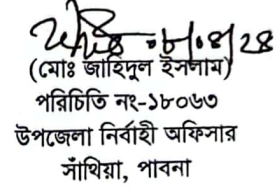 ০৮/০৪/২৪
(মোঃ জাহিদুল ইসলাম)
পরিচিতি নং-১৮০৬৩
উপজেলা নির্বাহী অফিসার
সাঁথিয়া, পাবনা